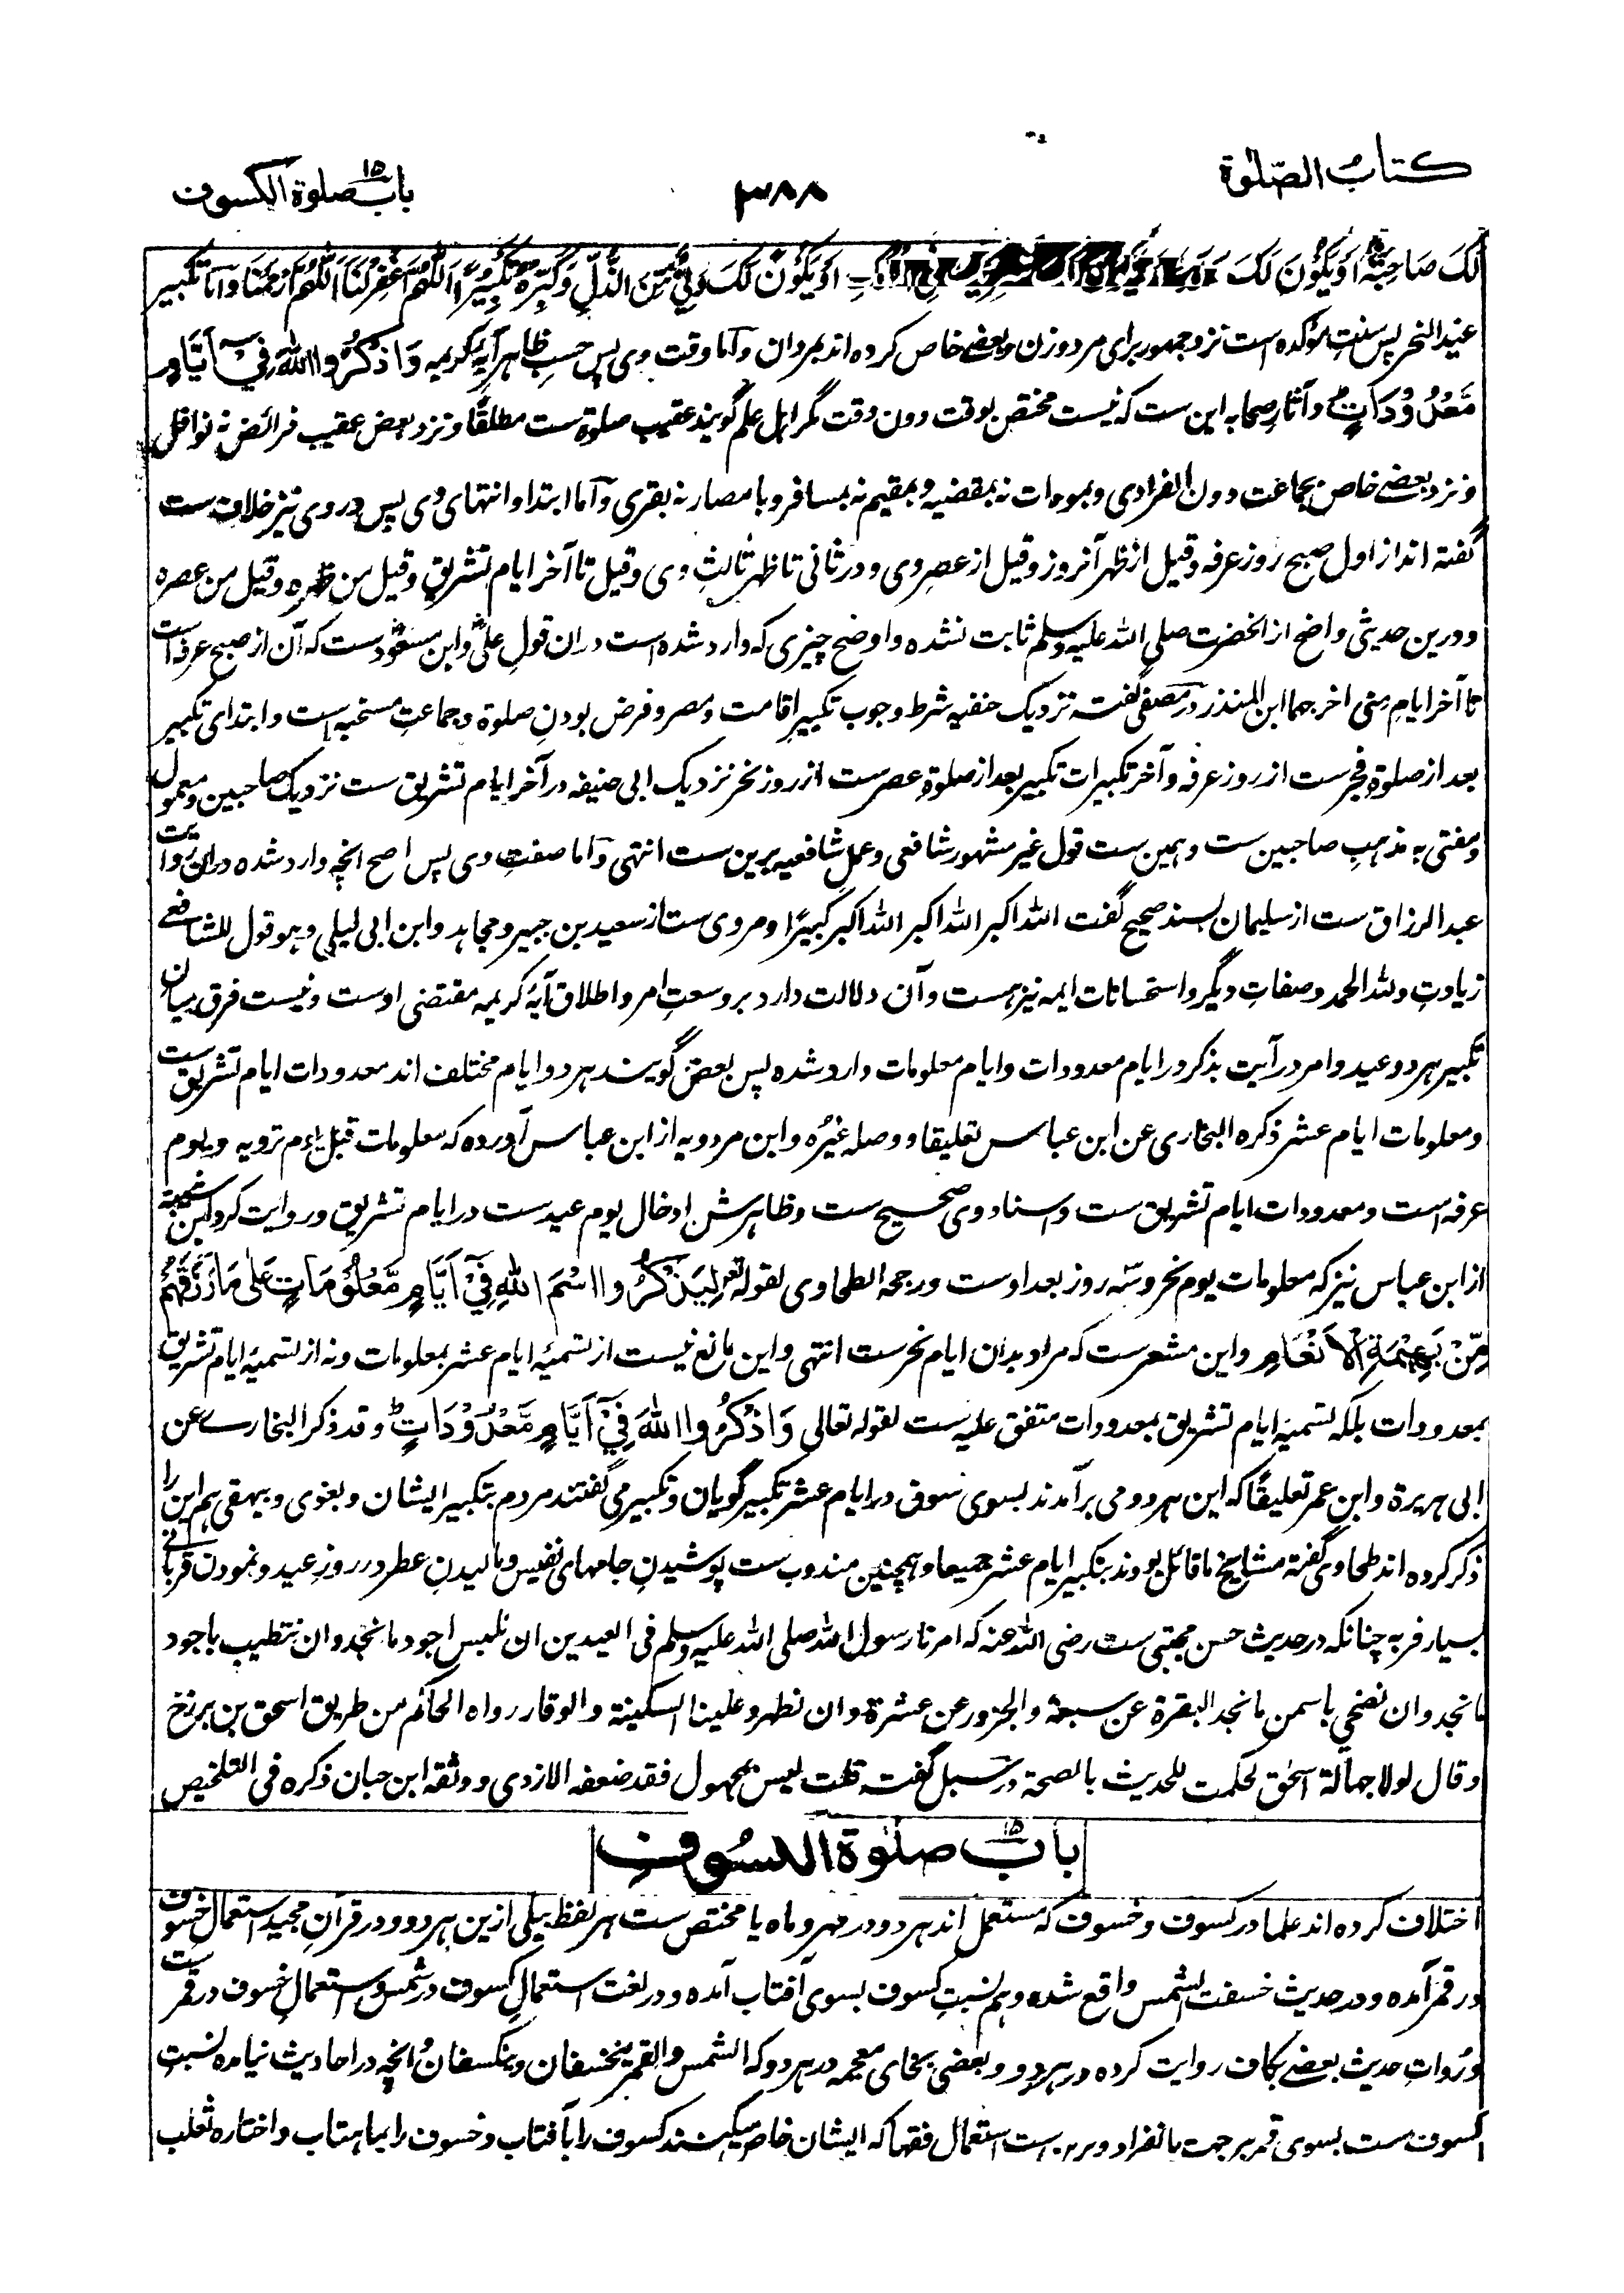 كتاب الصّلوة
٣٨٨
باب ١٥ صلوة الكسوف
لَكَ صَاحِبَةٌ اَوَيَكُوْنَ لَكَ اَوَيَكُوْنَ لَكَ وَلِيٌّ مِّنَ الذُّلِّ وَكَبِّرْهُ تَكْبِيْرًا اَللّٰهُمَّ اغْفِرْلَنَا اَللّٰهُمَّ ارْحَمْنَا و اما تكبير
عيد النحر پس سنت مؤكده است نزد جمهور برای مرد و زن و بعضے خاص كرده اند بمردان و اما وقت وی پس حسبِ ظاہر آیۂ كریمه وَاذْكُرُوا اللّٰهَ فِيْٓ اَيَّامٍ
مَّعْدُوْدَاتٍ و آثارِ صحابه این ست كه نیست مختص بوقت دون وقت مگر اہل علم گویند عقیب صلوة ست مطلقًا و نزد بعض عقیب فرائض نه نوافل
و نزد بعضے خاص بجماعت دون انفرادی و بمودات نه بمقضیه و بمقیم نه بمسافر و بامصار نه بقری و اما ابتدا و انتهای وی پس در وی نیز خلاف ست
گفته اند از اول صبح روز عرفه و قیل از ظهر آنروز و قیل از عصر وی و در ثانی تا ظهر ثالثِ وی و قیل تا آخر ایام تشریق و قیل من ظهره و قیل من عصره
و درین حدیثی واضح از انحضرت صلی الله علیه وسلم ثابت نشده و اوضح چیزی كه وارد شده است دران قولِ علی و ابن مسعود ست كه آن از صبح عرفه است
تا آخر ایامِ منی اخرجهما ابن المنذر در مصفی گفته نزدیک حنفیه شرط وجوب تكبیر اقامت و مصر و فرض بودنِ صلوة و جماعتِ مستحبه است و ابتدای تكبیر
بعد از صلوةِ فجرست از روز عرفه و آخر تكبیرات تكبیر بعد از صلوةِ عصرست از روز نحر نزدیک ابی حنیفه و در آخر ایام تشریق ست نزدیک صاحبین و معمول
و مفتی به مذہبِ صاحبین ست و ہمین ست قول غیر مشهور شافعی و عمل شافعیه برین ست انتهی و اما صفتِ وی پس اصح انچه وارد شده دران روایت
عبد الرزاق ست از سلیمان بسند صحیح گفت الله اكبر الله اكبر الله اكبر كبیرًا و مروی ست از سعید بن جبیر و مجاہد و ابن ابی لیلی و ہو قول للشافعے
زیادتِ ولله الحمد و صفاتِ دیگر و استحسانات ایمه نیز ہست و آن دلالت دارد بر وسعتِ امر و اطلاق آیۂ كریمه مقتضی اوست و نیست فرق میانِ
تكبیر ہر دو عید و امر در آیت بذكر در ایام معدودات و ایام معلومات وارد شده پس بعض گویند ہر دو ایام مختلف اند معدودات ایام تشریق ست
و معلومات ایام عشر ذكره البخاری عن ابن عباس تعلیقا و وصله غیرُه و ابن مردویه از ابن عباس آورده كه معلومات قبل یوم ترویه و یوم
عرفه است و معدودات ایام تشریق ست و اسناد وی صحیح ست و ظاہرش ادخال یوم عید ست در ایام تشریق و روایت كرد ابن شیبه
از ابن عباس نیز كه معلومات یوم نحر و سه روز بعد اوست و رجحه الطحاوی لقوله تع لِيَذْكُرُوا اسْمَ اللّٰهِ فِيْٓ اَيَّامٍ مَّعْلُوْمَاتٍ عَلٰى مَا رَزَقَهُمْ
مِّنْ بَهِيْمَةِ الْاَنْعَامِ و این مشعرست كه مراد بدان ایام نحر ست انتهی و این مانع نیست از تسمیۂ ایام عشر بمعلومات و نه از تسمیۂ ایام تشریق
بمعدودات بلكه تسمیۂ ایام تشریق بمعدودات متفق علیه ست لقوله تعالی وَاذْكُرُوا اللّٰهَ فِيْٓ اَيَّامٍ مَّعْدُوْدَاتٍ و قد ذكر البخارے عن
ابی ہریرة و ابن عمر تعلیقًا كه این ہر دو می برآمدند بسوی سوق در ایام عشر تكبیر گویان و تكبیر می گفتند مردم بتكبیر ایشان و بغوی و بیهقی ہم این را
ذكر كرده اند طحاوی گفته مشایخ ما قائل بودند بتكبیر ایام عشر جمیعا و ہمچنین مندوب ست پوشیدنِ جامهای نفیس و مالیدنِ عطر در روزِ عید و نمودن قربانے
بسیار فربه چنانكه در حدیث حسن مجتبی ست رضی الله عنه كه امرنا رسول الله صلی الله علیه وسلم فی العیدین ان نلبس اجود ما نجد و ان نتطیب باجود
ما نجد و ان نضحی باسمن ما نجد البقرة عن سبعة و الجزور عن عشرة و ان نظهر و علینا السكینة و الوقار رواه الحاكم من طریق اسحق بن برزخ
و قال لولا جهالة اسحق لحكمت للحدیث بالصحة در سبل گفته قلت لیس بمجهول فقد ضعفه الازدی و وثقه ابن حبان ذكره فی التلخیص
باب ١٥ صلٰوة الكسوف
اختلاف كرده اند علما در كسوف و خسوف كه مستعمل اند ہر دو در مهر و ماه یا مختص ست ہر لفظ بیكی ازین ہر دو و در قرآنِ مجید استعمالِ خسوف
در قمر آمده و در حدیث خسفت الشمس واقع شده و ہم نسبتِ كسوف بسوی آفتاب آمده و در لغت استعمالِ كسوف در شمس و استعمالِ خسوف در قمر ست
و رُواتِ حدیث بعضے بكاف روایت كرده در ہر دو و بعضی بخای معجمه در ہر دو كه الشمس و القمر ینخسفان و ینكسفان و انچه در احادیث نیامده نسبتِ
كسوف ست بسوی قمر بر جهت انفراد و برین ست استعمال فقها كه ایشان خاص میكنند كسوف را بآفتاب و خسوف را بماہتاب و اختاره ثعلب